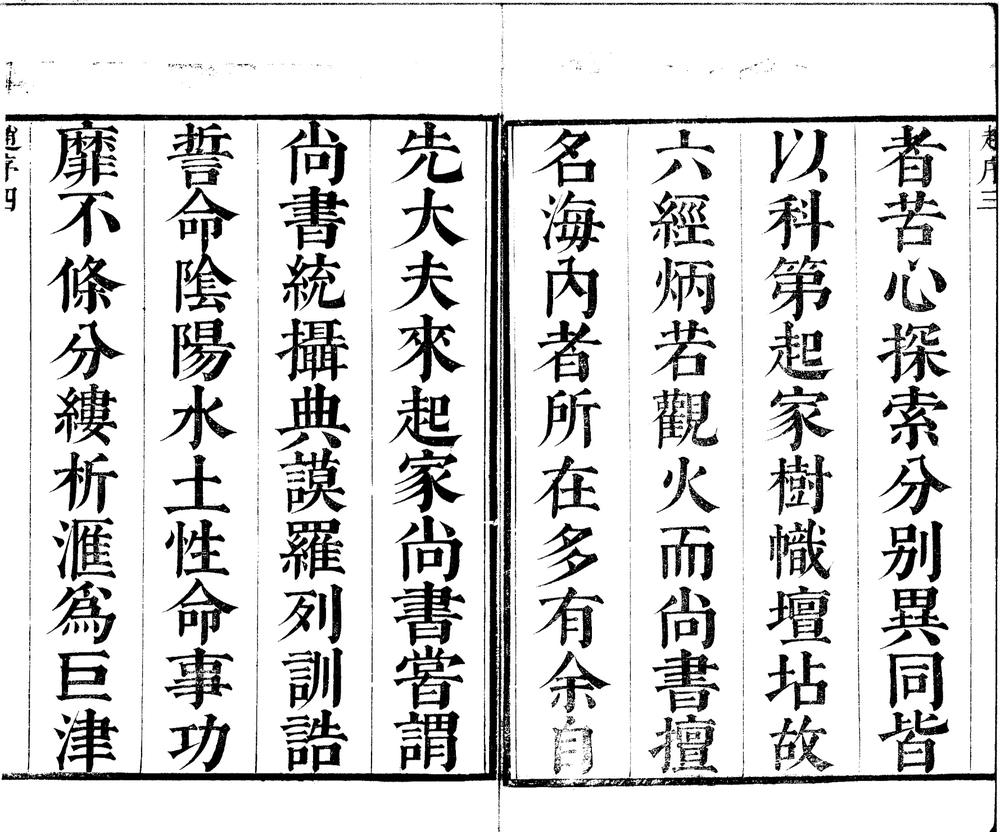 趙序三
者苦心探索分别異同皆
以科第起家樹幟壇坫故
六經炳若觀火而尚書擅
名海內者所在多有余自
先大夫來起家尚書嘗謂
尚書統攝典謨羅列訓誥
誓命陰陽水土性命事功
靡不條分縷析滙爲巨津
趙序四